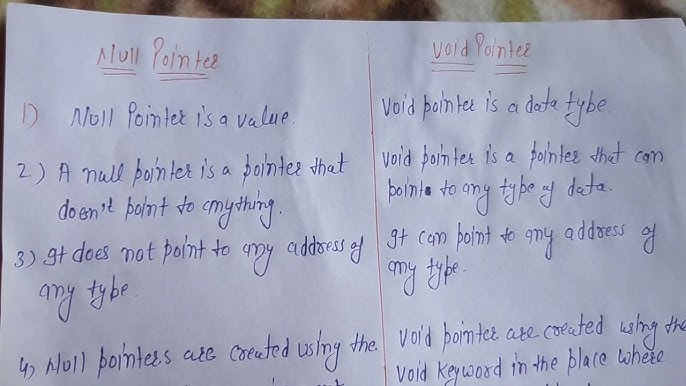 Null Pointer
1) Null Pointer is a value.
2.) A null pointer is a pointer that
doesn't point to anything.
3.) It does not point to any address of
any type.
4.) Null pointers are created using the
Void Pointer
Void pointer is a data type.
Void pointer is a pointer that can
point to any type of data.
It can point to any address of
any type.
Void pointer are created using the
Void keyword in the place where